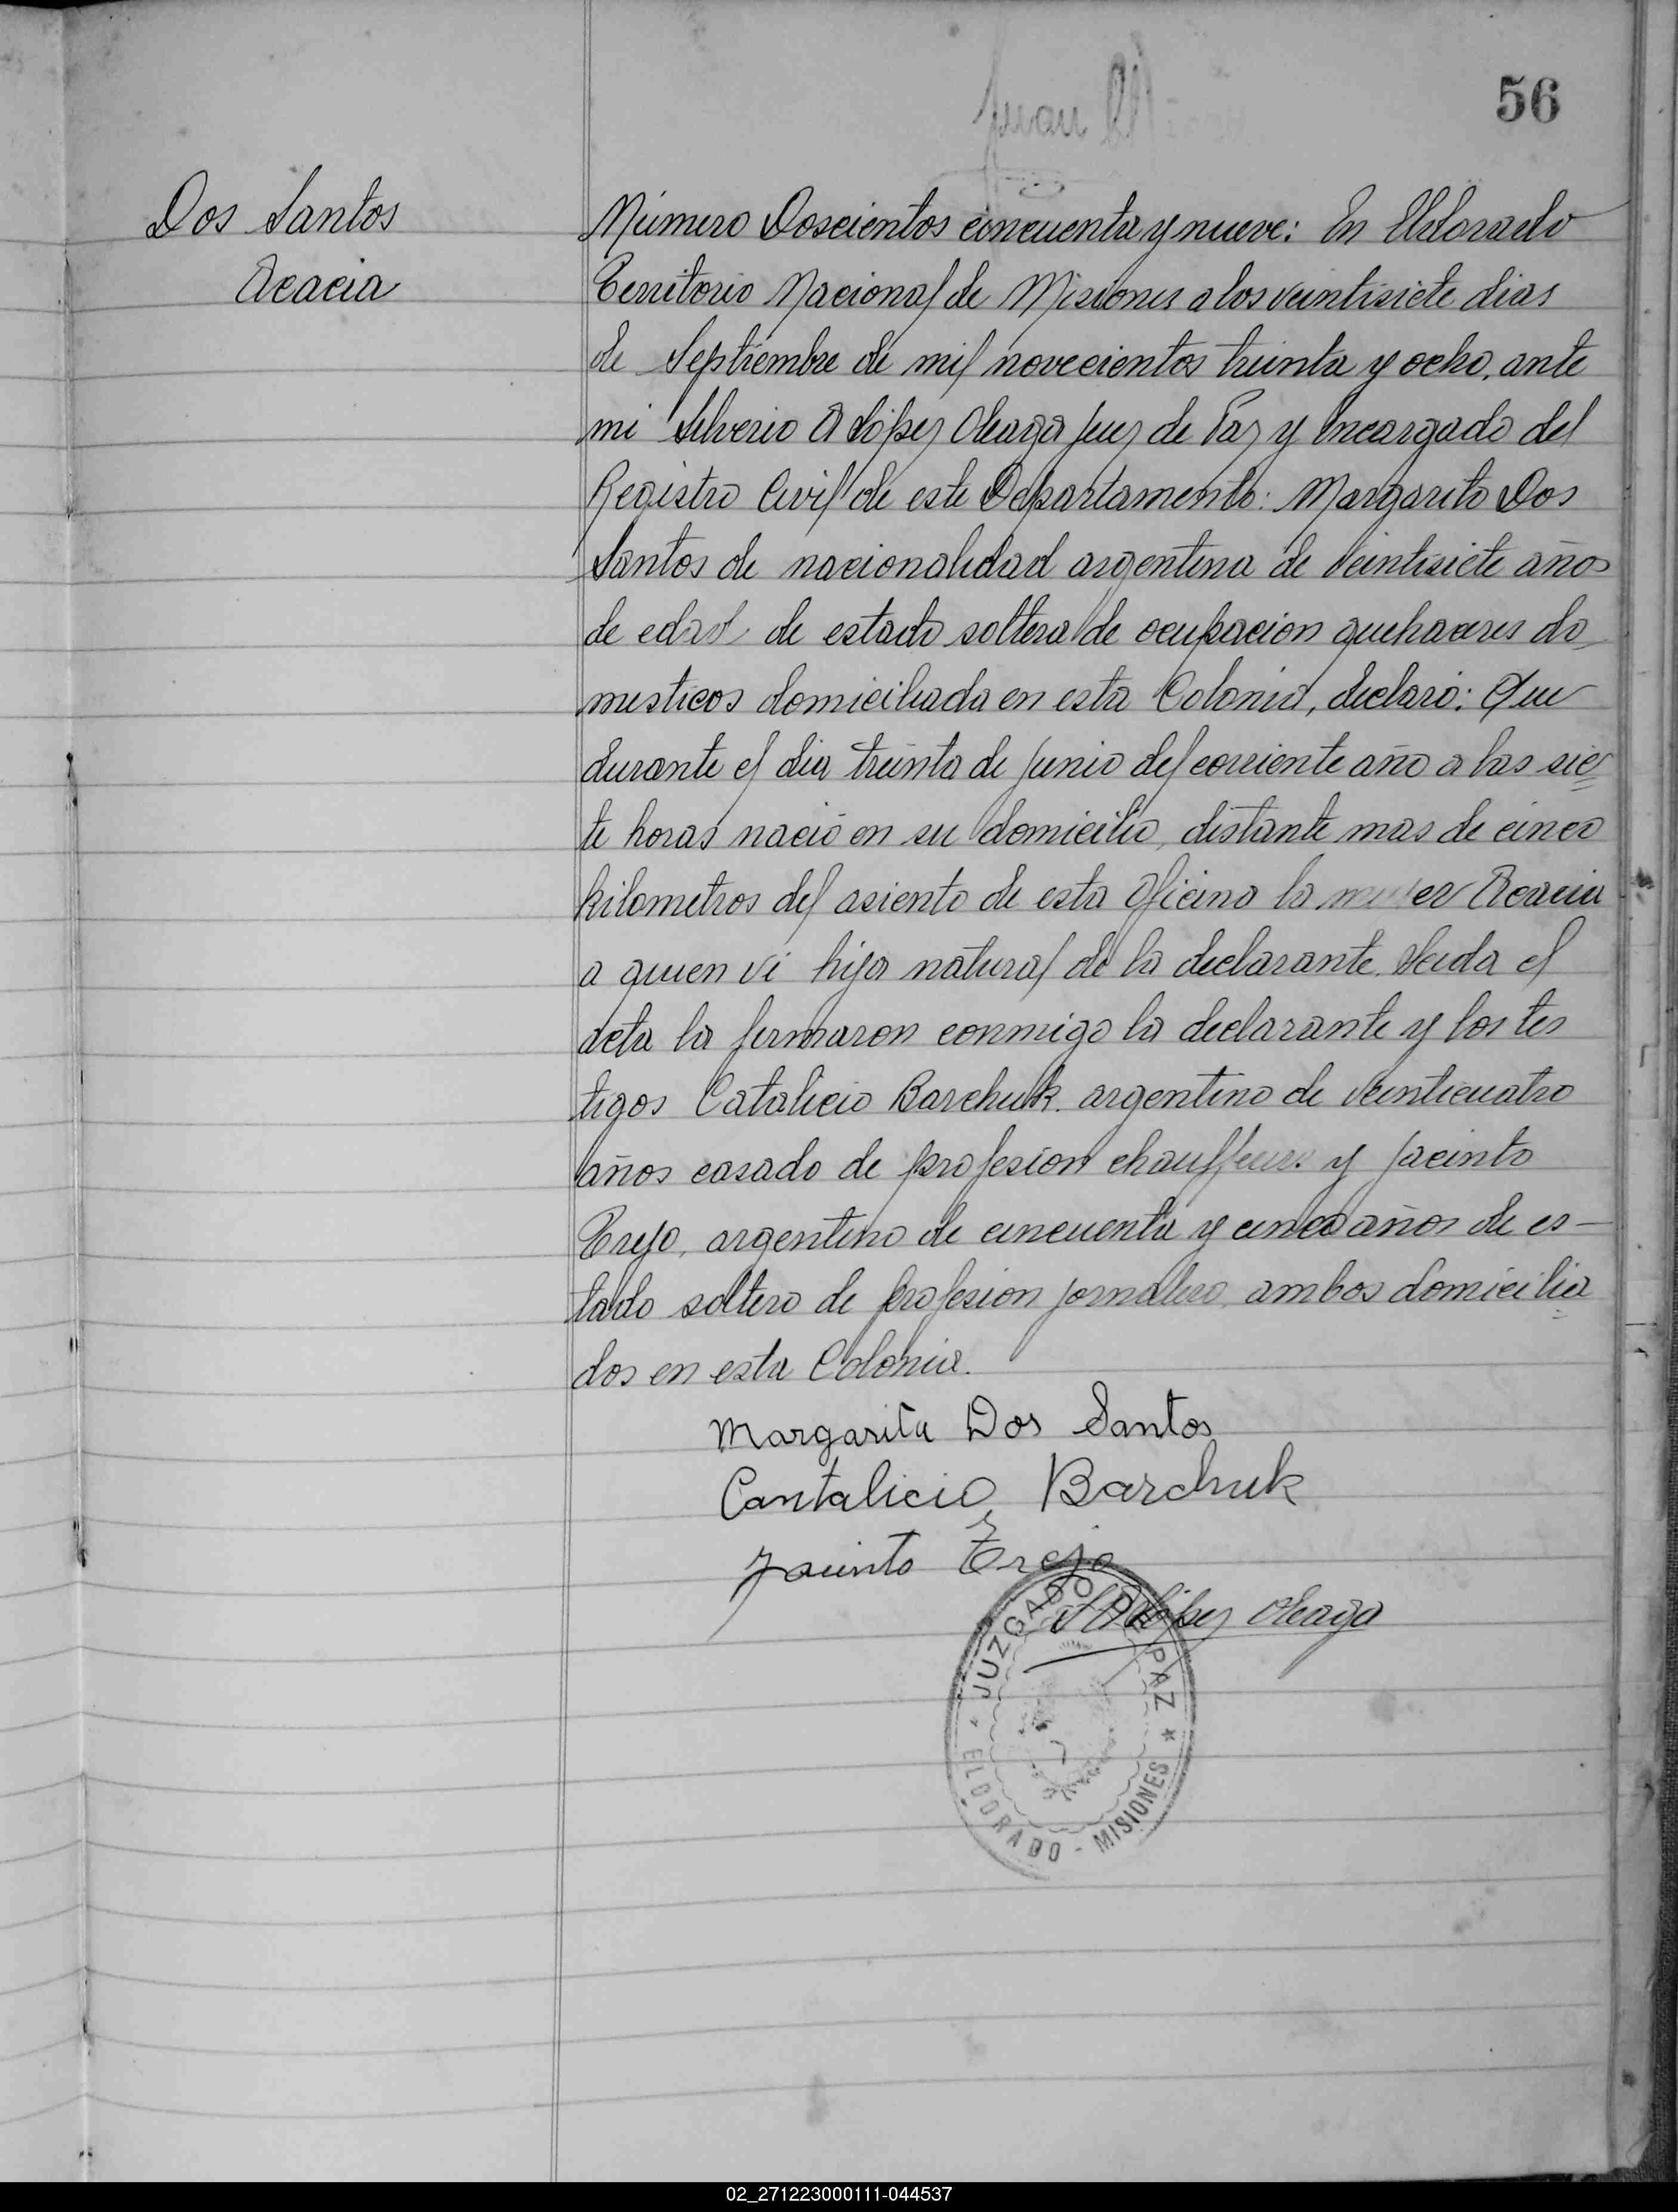 56
Juan
Dos Santos
Acacia
Número Doscientos cincuenta y nueve: En Eldorado
Territorio Nacional de Misiones a los veintisiete dias
de Septiembre de mil novecientos treinta y ocho, ante
mi Silverio A López Oleaga Juez de Paz y Encargado del
Registro Civil de este Departamento: Margarita Dos
Santos de nacionalidad argentina de veintisiete años
de edad de estado soltera de ocupacion quehaceres do
mesticos domiciliada en esta Colonia, declaró: Que
durante el dia treinta de Junio del corriente año a las sie
te horas nació en su domicilio, distante mas de cinco
kilometros del asiento de esta Oficina la mujer Acacia
a quien vi hija natural de la declarante. Leida el
acta la firmaron conmigo la declarante y los tes
tigos Catalicio Barchuk. argentino de veinticuatro
años casado de profesion chauffeur y Jacinto
Trejo, argentino de cincuenta y cinco años de es-
tado soltero de profesion jornalero, ambos domicilia
dos en esta Colonia.
Margarita Dos Santos
Cantalicio Barchuk
Jacinto Trejo
S A López Oleaga
JUZGADO DE PAZ
ELDORADO - MISIONES
02_271223000111-044537